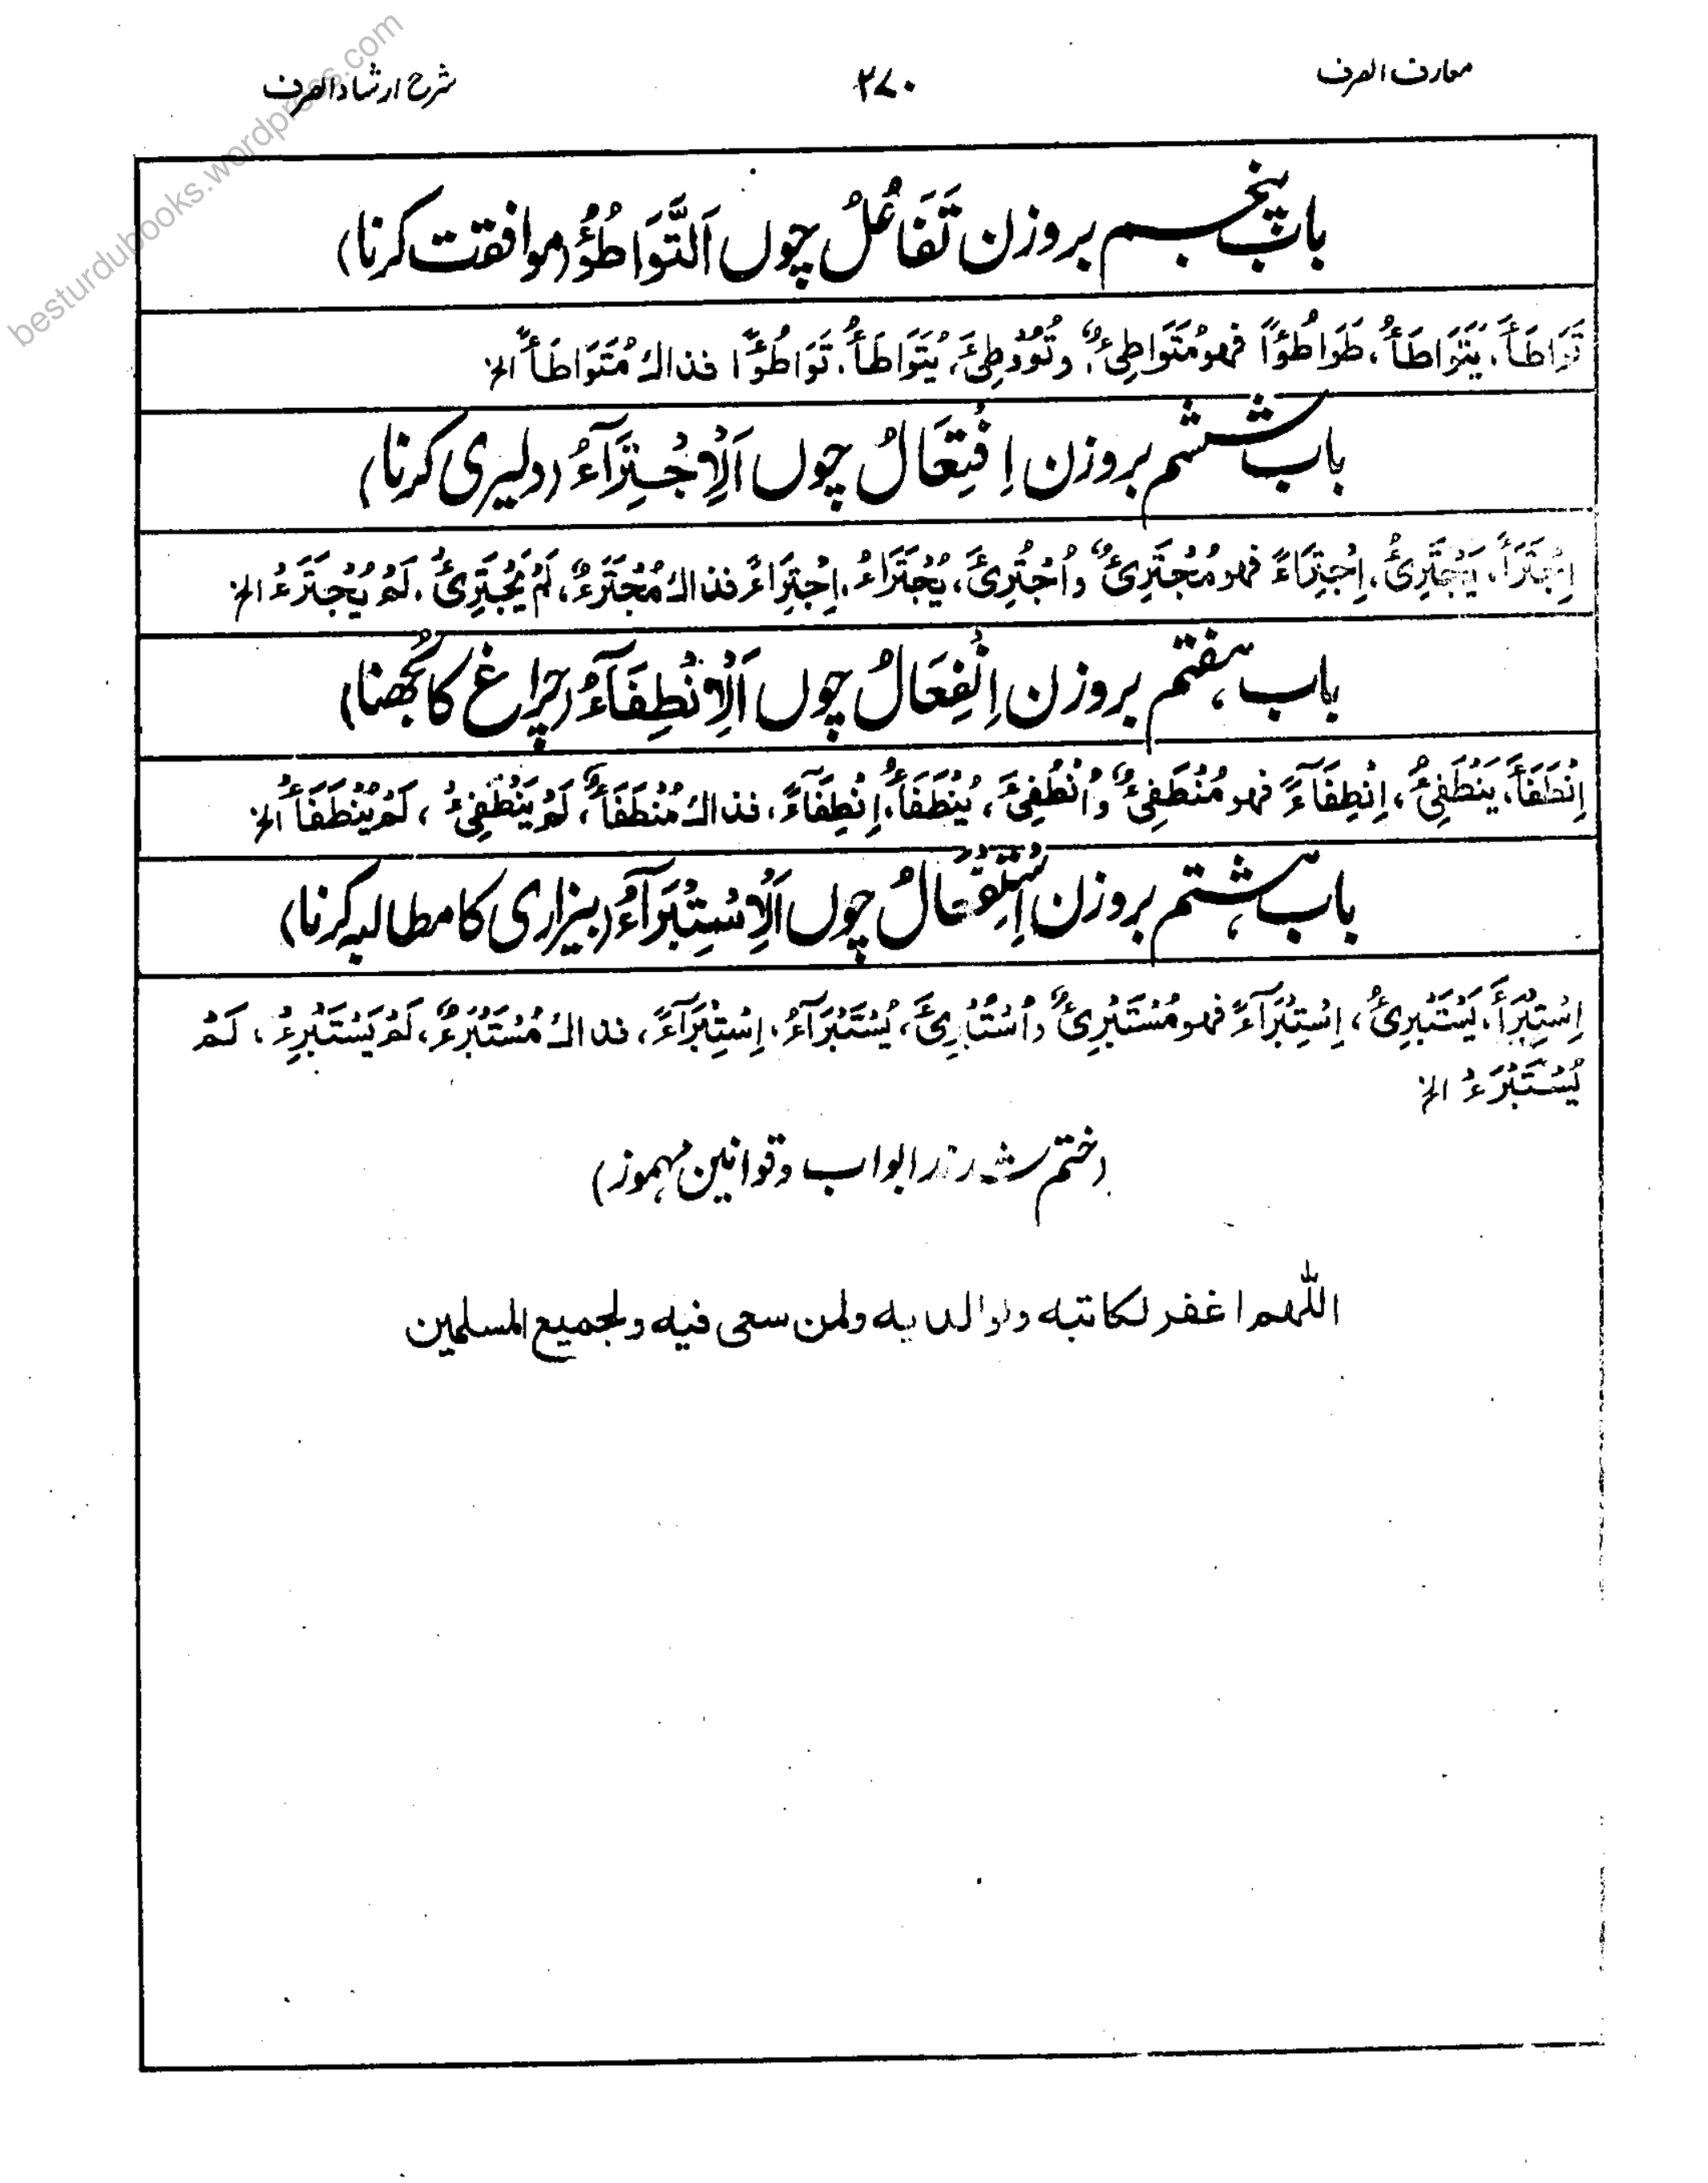 معارف الصرف
۲۷۰
شرح ارشاد الصرف
besturdubooks.wordpress.com
باب پنجم بروزن تَفَاعُلُ چوں اَلتَّوَاطُؤُ (موافقت کرنا)
تَوَاطَأَ، يَتَوَاطَأُ، طَوَاطُوًا فهو مُتَوَاطِئٌ، وتُوُوطِئَ، يُتَوَاطَأُ، تَوَاطُوًا فذاك مُتَوَاطَأٌ الخ
باب ششم بروزن اِفْتِعَالُ چوں اَلْاِجْتِرَآءُ (دلیری کرنا)
اِجْتَرَأَ، يَجْتَرِئُ، اِجْتِرَاءً فهو مُجْتَرِئٌ واُجْتُرِئَ، يُجْتَرَاءُ، اِجْتِرَاءً فذاك مُجْتَرَءٌ، لَمْ يَجْتَرِئْ، لَمْ يُجْتَرَءْ الخ
باب ہفتم بروزن اِنْفِعَالُ چوں اَلْاِنْطِفَآءُ (چراغ کا بُجھنا)
اِنْطَفَأَ، يَنْطَفِئُ، اِنْطِفَآءً فهو مُنْطَفِئٌ واُنْطُفِئَ، يُنْطَفَأُ، اِنْطِفَآءً، فذاك مُنْطَفَأٌ، لَمْ يَنْطَفِئْ، لَمْ يُنْطَفَأْ الخ
باب ہشتم بروزن اِسْتِفْعَالُ چوں اَلْاِسْتِبْرَآءُ (بیزاری کا مطالبہ کرنا)
اِسْتِبْرَأَ، يَسْتَبْرِئُ، اِسْتِبْرَآءً فهو مُسْتَبْرِئٌ واُسْتُبْرِئَ، يُسْتَبْرَآءُ، اِسْتِبْرَآءً، فذاك مُسْتَبْرَءٌ، لَمْ يَسْتَبْرِءْ، لَمْ
يُسْتَبْرَءْ الخ
(ختم شد ابواب وقوانین مہموز)
اللّٰهم اغفر لكاتبه ولوالديه ولمن سعى فيه ولجميع المسلمين